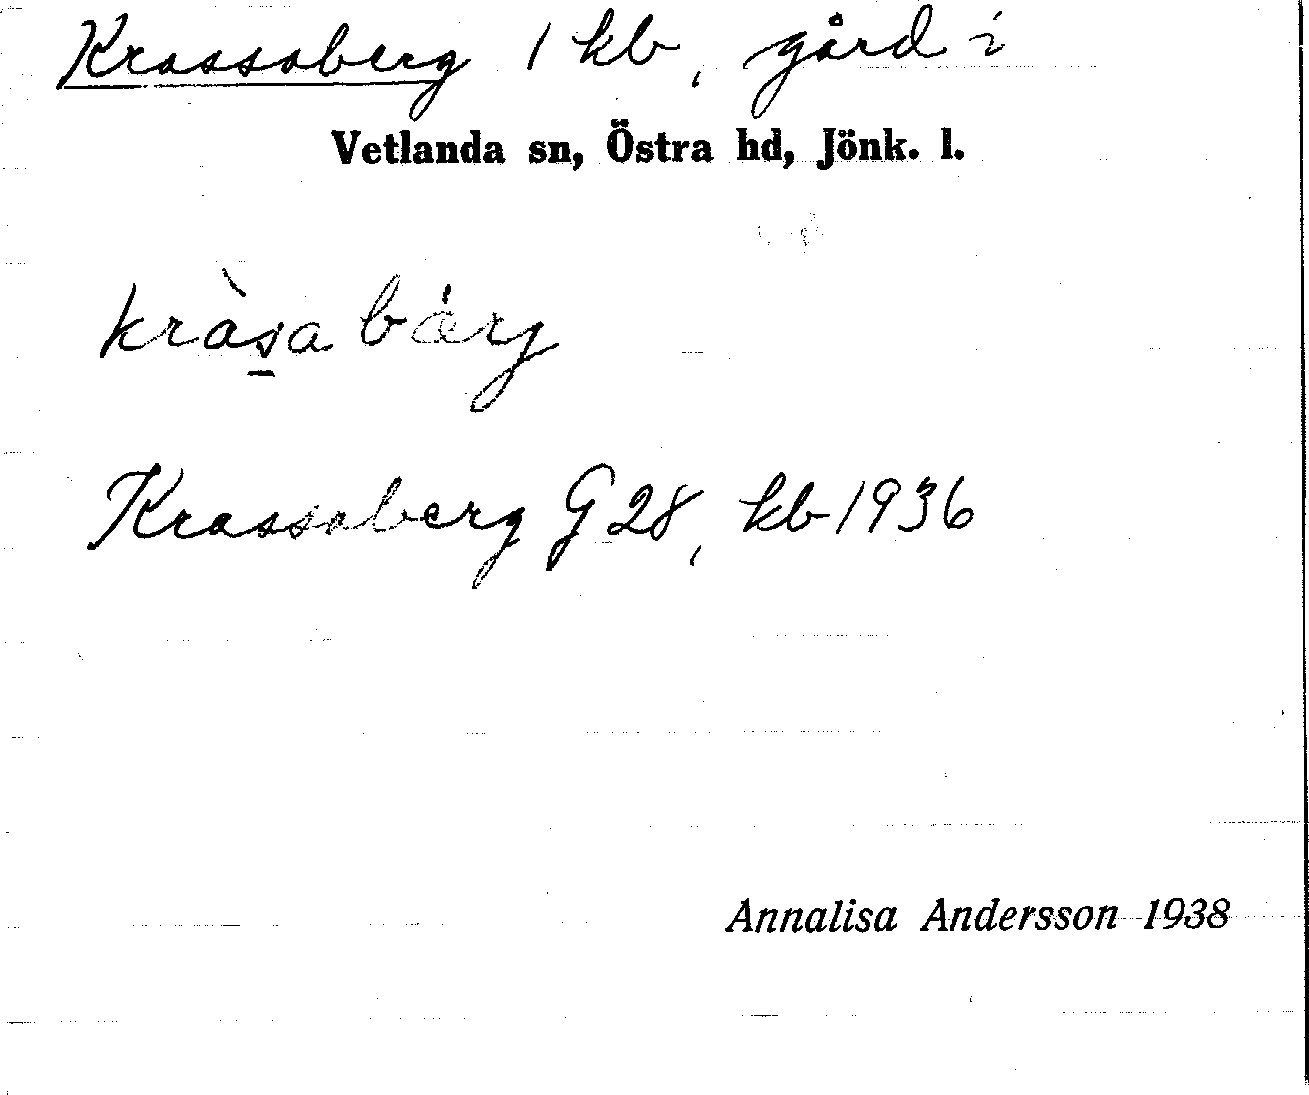 Krassaberg 1 kb, gård i
Vetlanda sn, Östra hd, Jönk. l.
kràs̱a bárj
Krassaberg G 28, kb 1936
Annalisa Andersson 1938